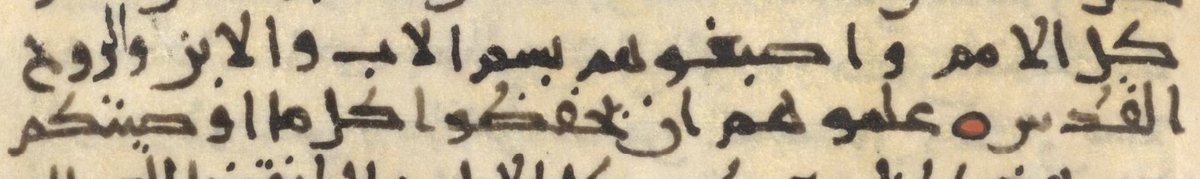 كل الامم واصبغوهم بسم الاب والابن والروح
القدس علموهم ان يحفظوا كل ما اوصيتكم